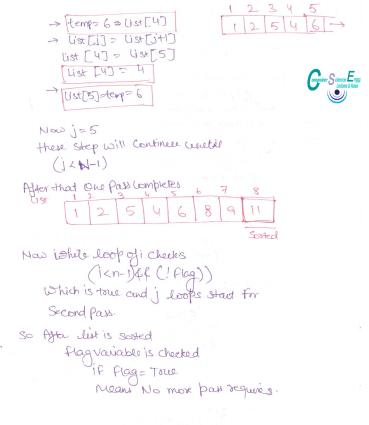 → temp = 6 = List[4]
→ List[j] = List[j+1]
List [4] = List[5]
List [4] = 4
→ List[5] = temp = 6
1 2 3 4 5
1 2 5 4 6 →
Computer Science Enggi
Lectures & Notes
Now j = 5
these step will Continue until
(j < N-1)
After that One Pass Completes
List 1 2 3 4 5 6 7 8
1 2 5 4 6 8 9 11
Sorted
Now while loop of i checks
(i<n-1) && (!flag))
which is true and j loops start for
Second Pass.
So After list is sorted
flag variable is checked
if flag = True
Means No more pass requires.